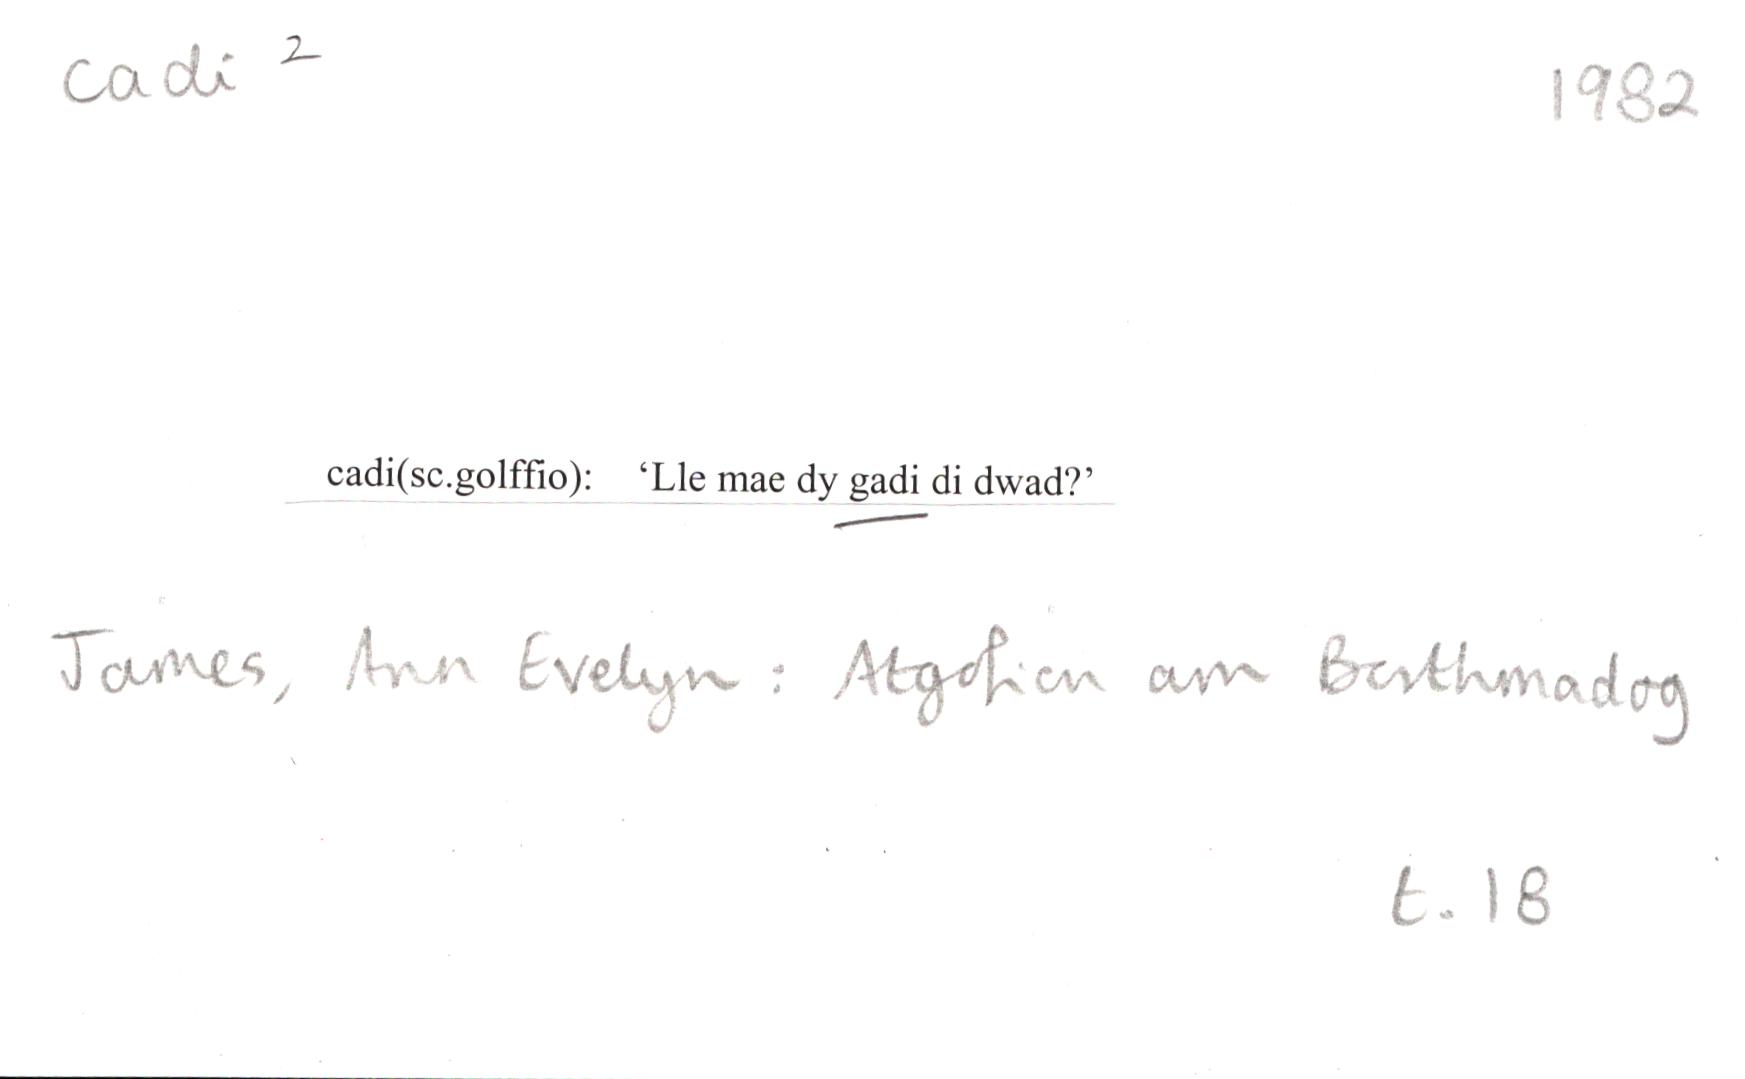 cadi 2 1982
cadi(sc.golffio): ‘Lle mae dy gadi di dwad?’
James, Ann Evelyn : Atgofion am Borthmadog
t. 18